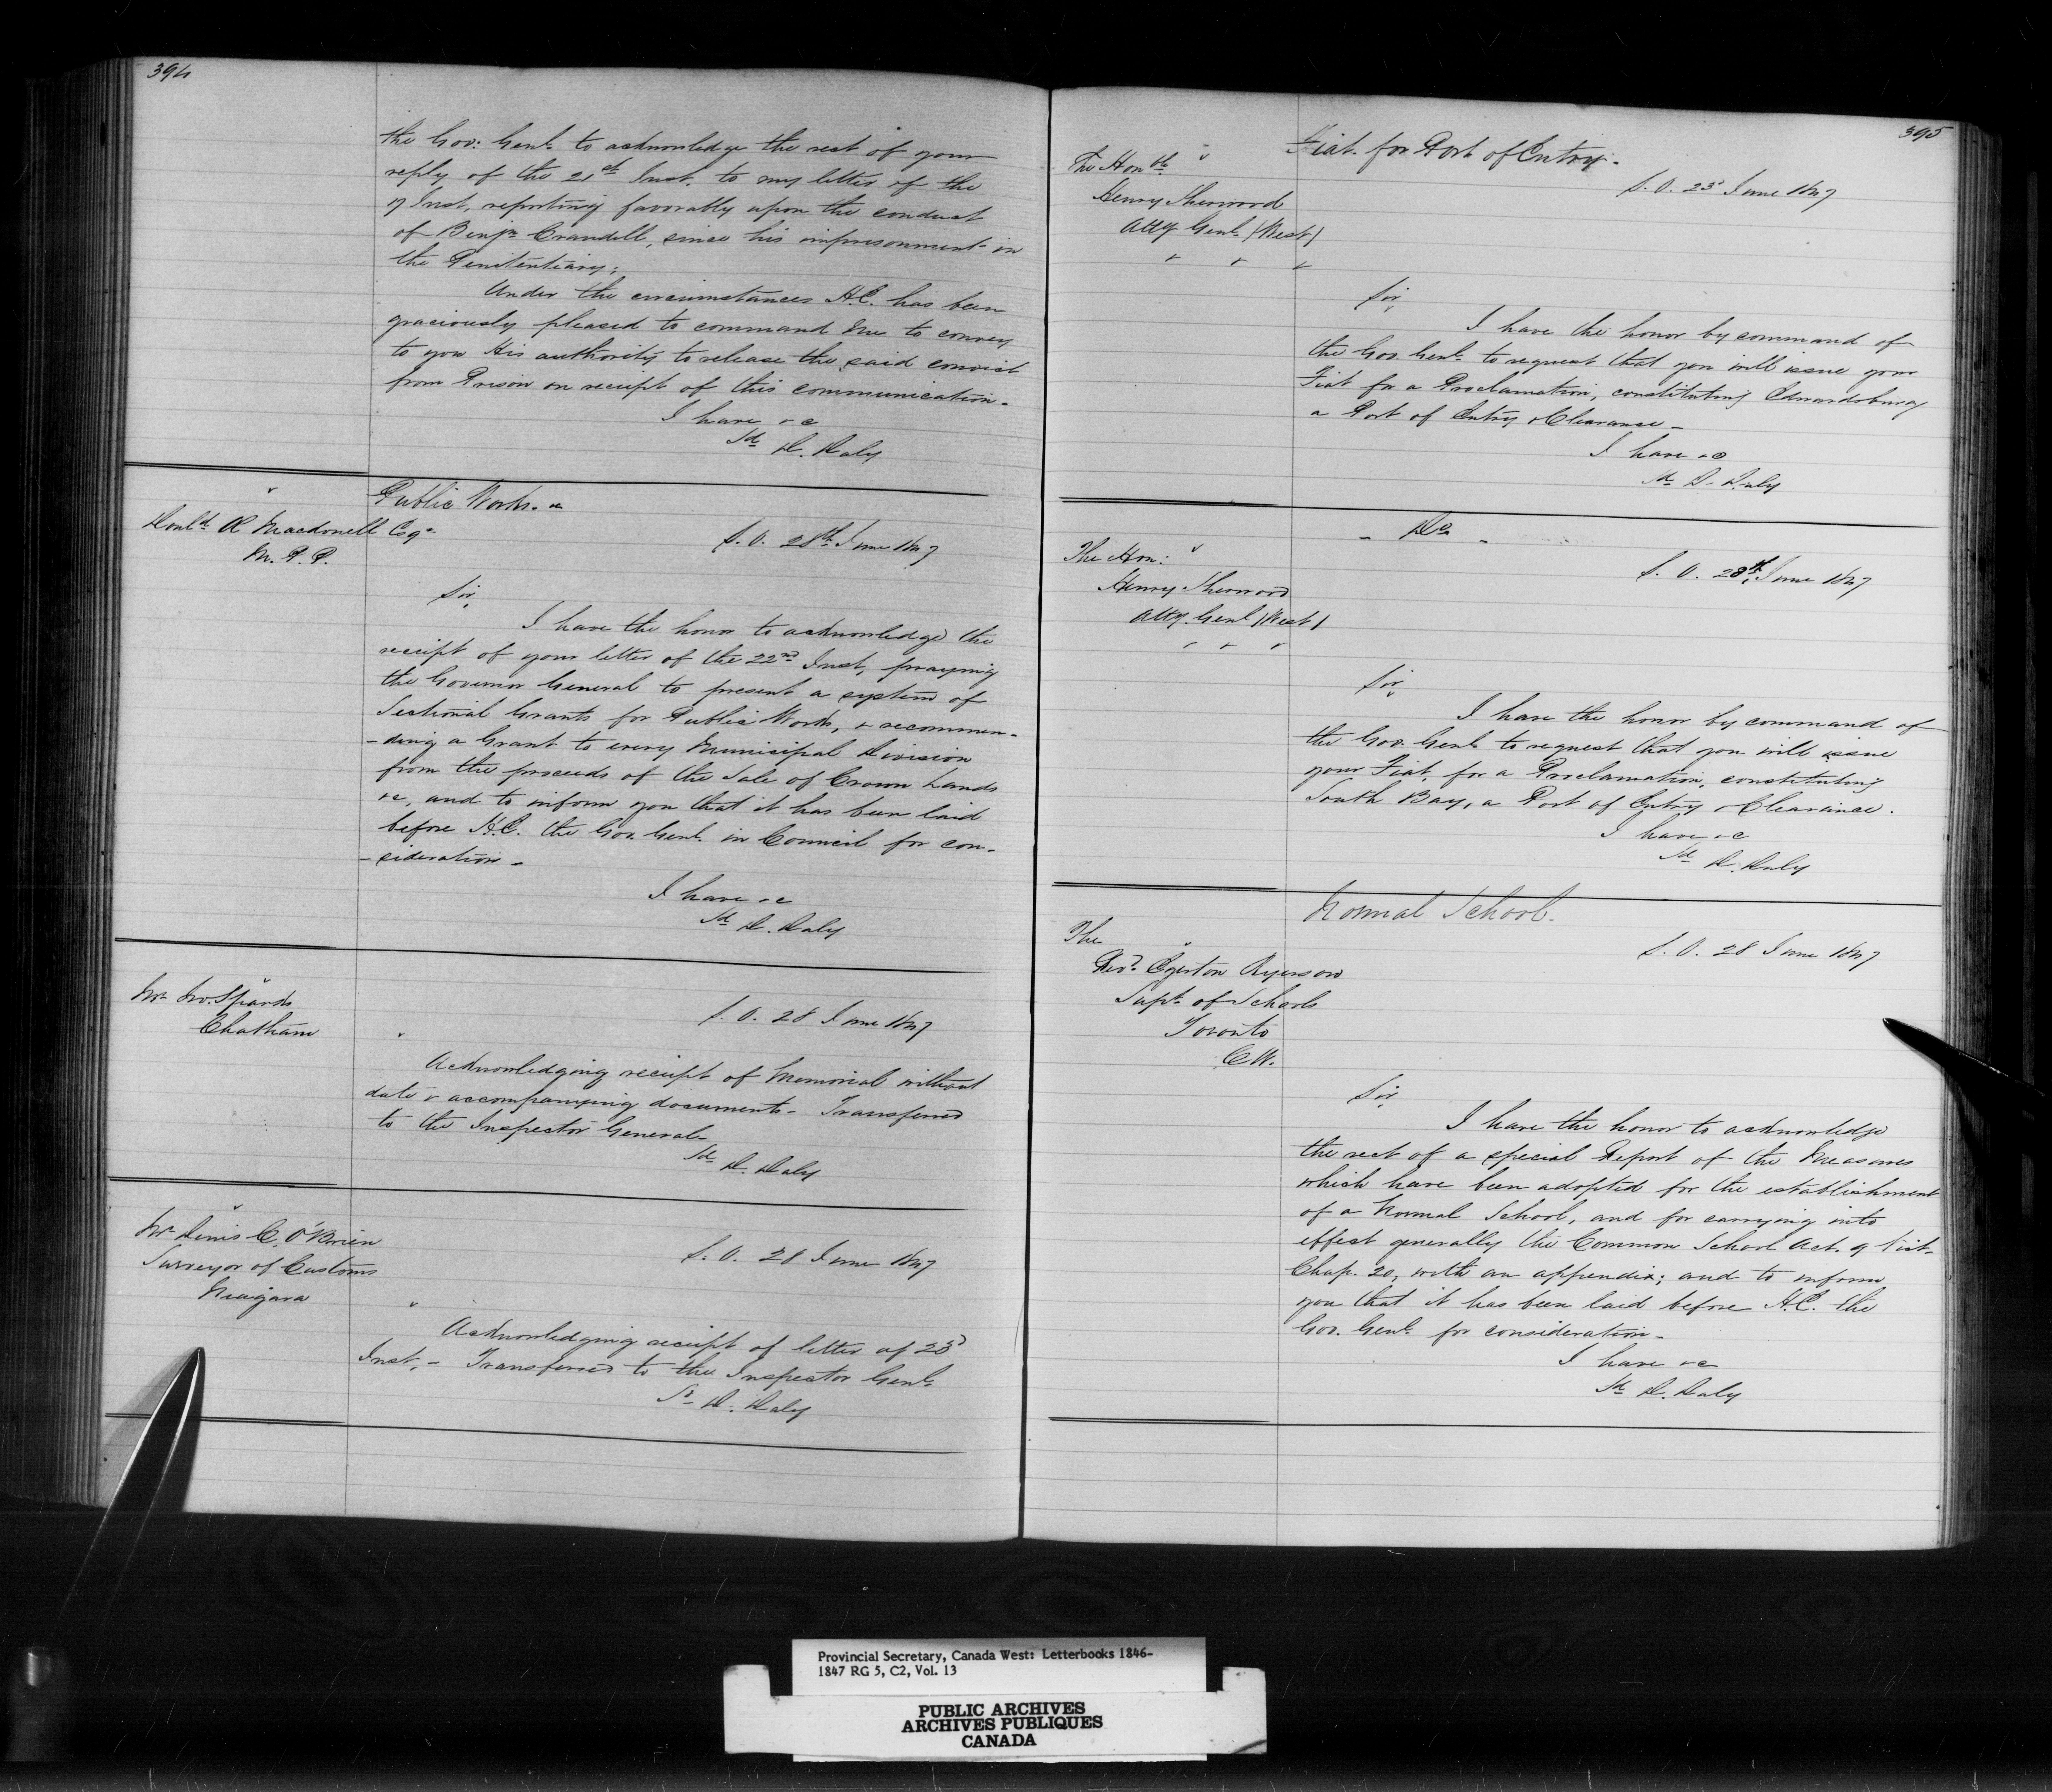 394
the Gov: Genl. to acknowledge the rect of your
reply of the 21st Inst. to my letter of the
17 Inst, reporting favorably upon the conduct
of Benjn Crandell, since his imprisonment in
the Penitentiary;
Under the circumstances H.E. has been
graciously pleased to command me to convey
to you His authority to release the said convict
from Prison on receipt of this communication.
I have &c
Sd D. Daly
Public Works. &c
Donld Æ Macdonell Esqr
M. P. P.
S. O. 28th June 1847
Sir,
I have the honor to acknowledge the
receipt of your letter of the 22nd Inst, praying
the Governor General to present a system of
Sectional Grants for Public Works, & recommen-
-ding a Grant to every Municipal Division
from the proceeds of the Sale of Crown Lands
&c, and to inform you that it has been laid
before H.E. the Gov. Genl. in Council for con-
-sideration -
I have &c
Sd D. Daly
Mr Jno. Sparks
Chatham
S. O. 28 June 1847
Acknowledging receipt of Memorial without
date & accompanying documents - Transferred
to the Inspector General -
Sd D. Daly
Mr Denis C. O'Brien
Surveyor of Customs
Niagara
S. O. 28 June 1847
Acknowledging receipt of letter of 23d
Inst. - Transferred to the Inspector Genl.
Sd D. Daly
395
Fiat for Port of Entry -
The Honble
Henry Sherwood
Atty Genl. (West)
S. O. 23d June 1847
Sir,
I have the honor by command of
the Gov. Genl. to request that you will issue your
Fiat for a Proclamation, constituting Edwardsburg
a Port of Entry & Clearance -
I have &c
Sd D. Daly
- Do -
The Hon:
Henry Sherwood
Atty. Genl (West)
S. O. 28th June 1847
Sir,
I have the honor by command of
the Gov. Genl. to request that you will issue
your Fiat, for a Proclamation, constituting
South Bay, a Port of Entry & Clearance.
I have &c
Sd D. Daly
Normal School.
The
Revd. Egerton Ryerson
Supt. of Schools
Toronto
C W.
S. O. 28 June 1847
Sir,
I have the honor to acknowledge
the rect of a special Report of the Measures
which have been adopted for the establishment
of a Normal School, and for carrying into
effect generally the Common School Act. 9 Vict.
Chap. 20, with an appendix; and to inform
you that it has been laid before H.E. the
Gov. Genl. for consideration -
I have &c
Sd D. Daly
Provincial Secretary, Canada West: Letterbooks 1846-
1847 RG 5, C2, Vol. 13
PUBLIC ARCHIVES
ARCHIVES PUBLIQUES
CANADA